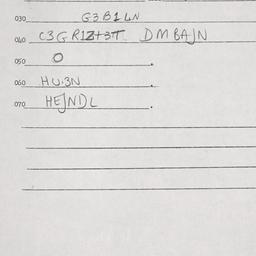 030 G3B1LN
040 C3GR1Z+3T DMBAJN
050 O .
060 HU.3N .
070 HEJNDL .